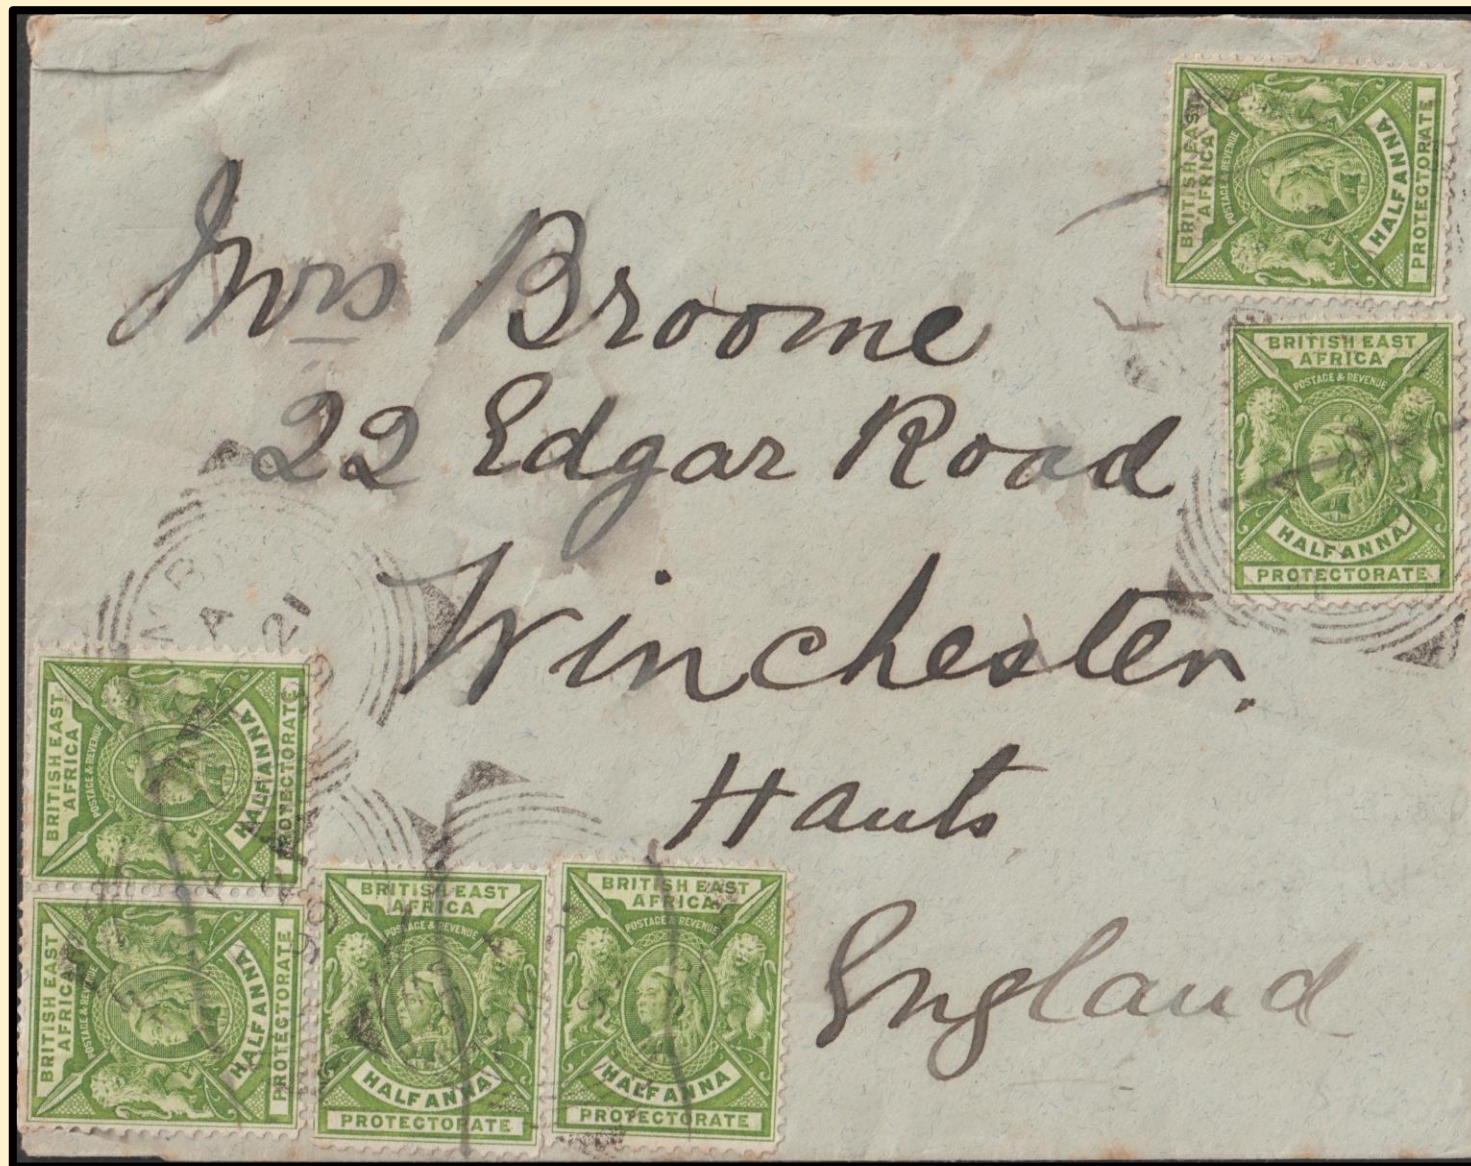 Mrs Broome
22 Edgar Road
Winchester.
Hants
England
BRITISH EAST
AFRICA
POSTAGE & REVENUE
HALF ANNA
PROTECTORATE
BRITISH EAST
AFRICA
POSTAGE & REVENUE
HALF ANNA
PROTECTORATE
A
21
BRITISH EAST
AFRICA
POSTAGE & REVENUE
HALF ANNA
PROTECTORATE
BRITISH EAST
AFRICA
POSTAGE & REVENUE
HALF ANNA
PROTECTORATE
BRITISH EAST
AFRICA
POSTAGE & REVENUE
HALF ANNA
PROTECTORATE
BRITISH EAST
AFRICA
POSTAGE & REVENUE
HALF ANNA
PROTECTORATE